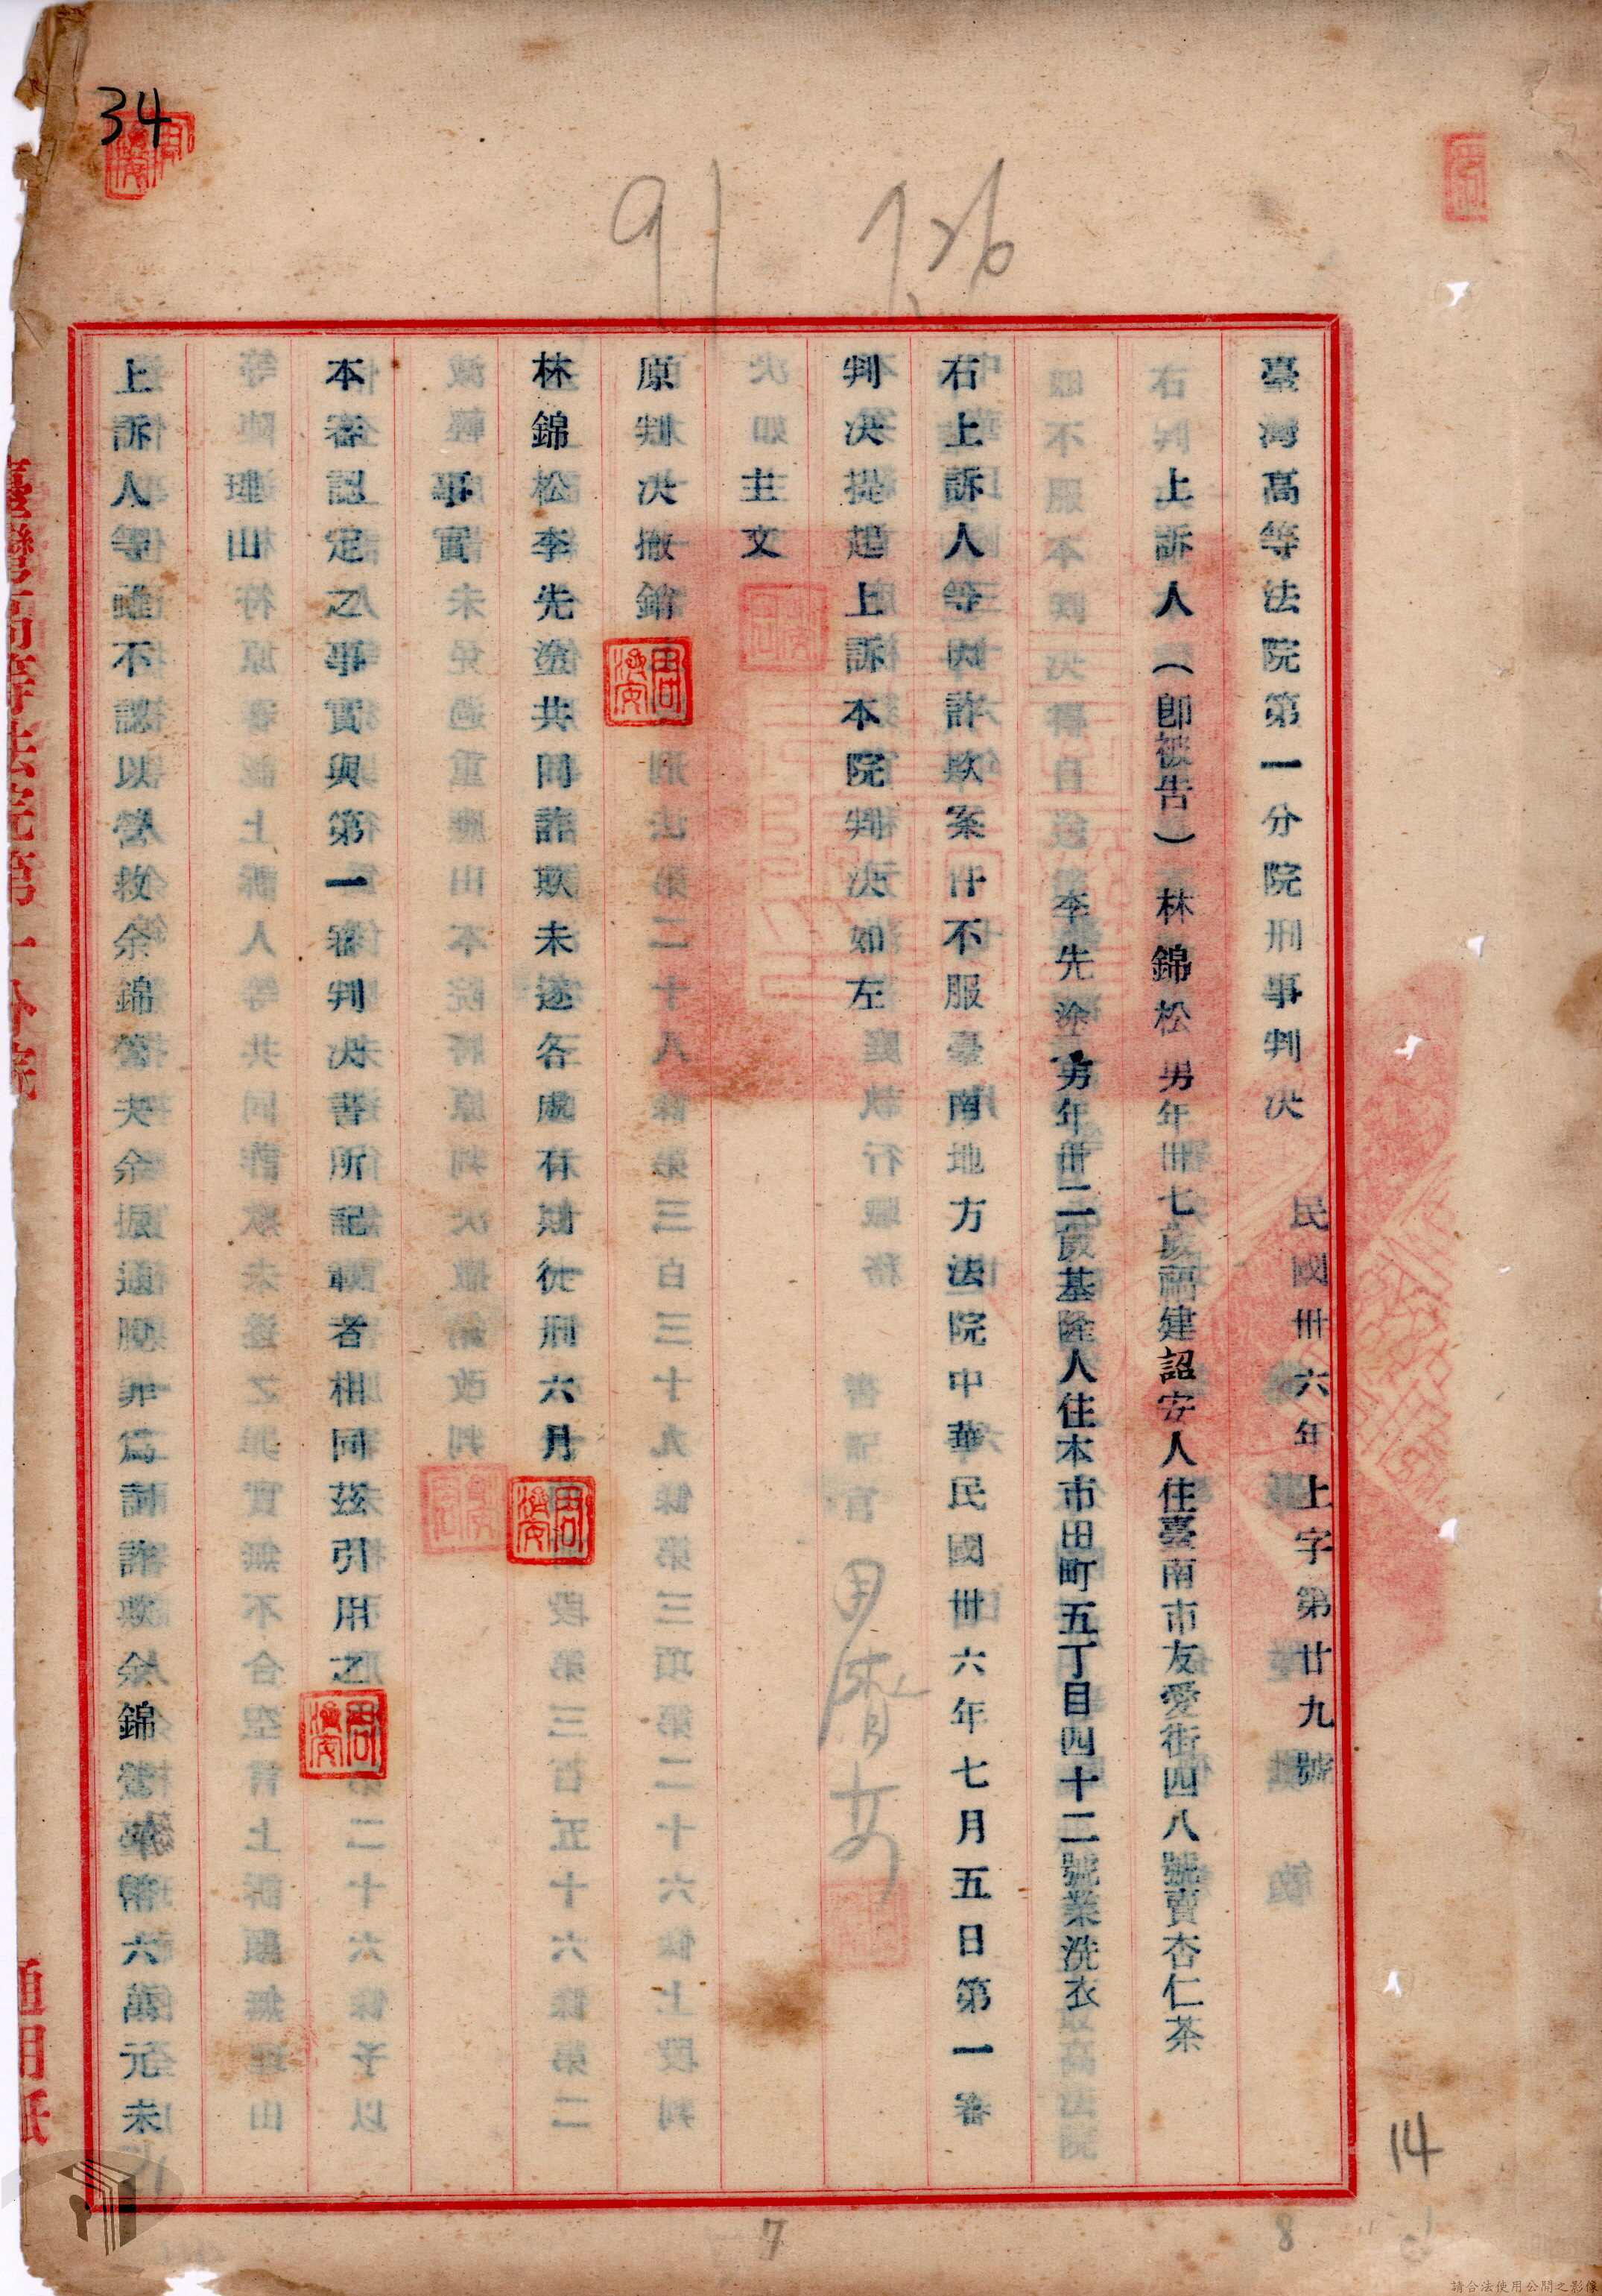 34
91 7,26
臺灣高等法院第一分院刑事判決
民國卅六年上字第廿九號
上訴人（即被告）林錦松 男年卌七歲福建詔安人住臺南市友愛街四八號賣杏仁茶
李先塗 男年卌二歲基隆人住本市田町五丁目四十二號業洗衣
右上訴人等因詐欺案件不服臺南地方法院中華民國卅六年七月五日第一審
判決提起上訴本院判決如左
主文
原判決撤銷
林錦松李先塗共同詐欺未遂各處有期徒刑六月
事實
本審認定之事實與第一審判決書所記載者相同茲引用之
理由
上訴人等雖不認以營救余錦鶯夫余振通脫罪為詞詐欺余錦鶯臺幣六萬元未
臺灣高等法院第一分院
通用紙
14
7
8
請合法使用公開之影像